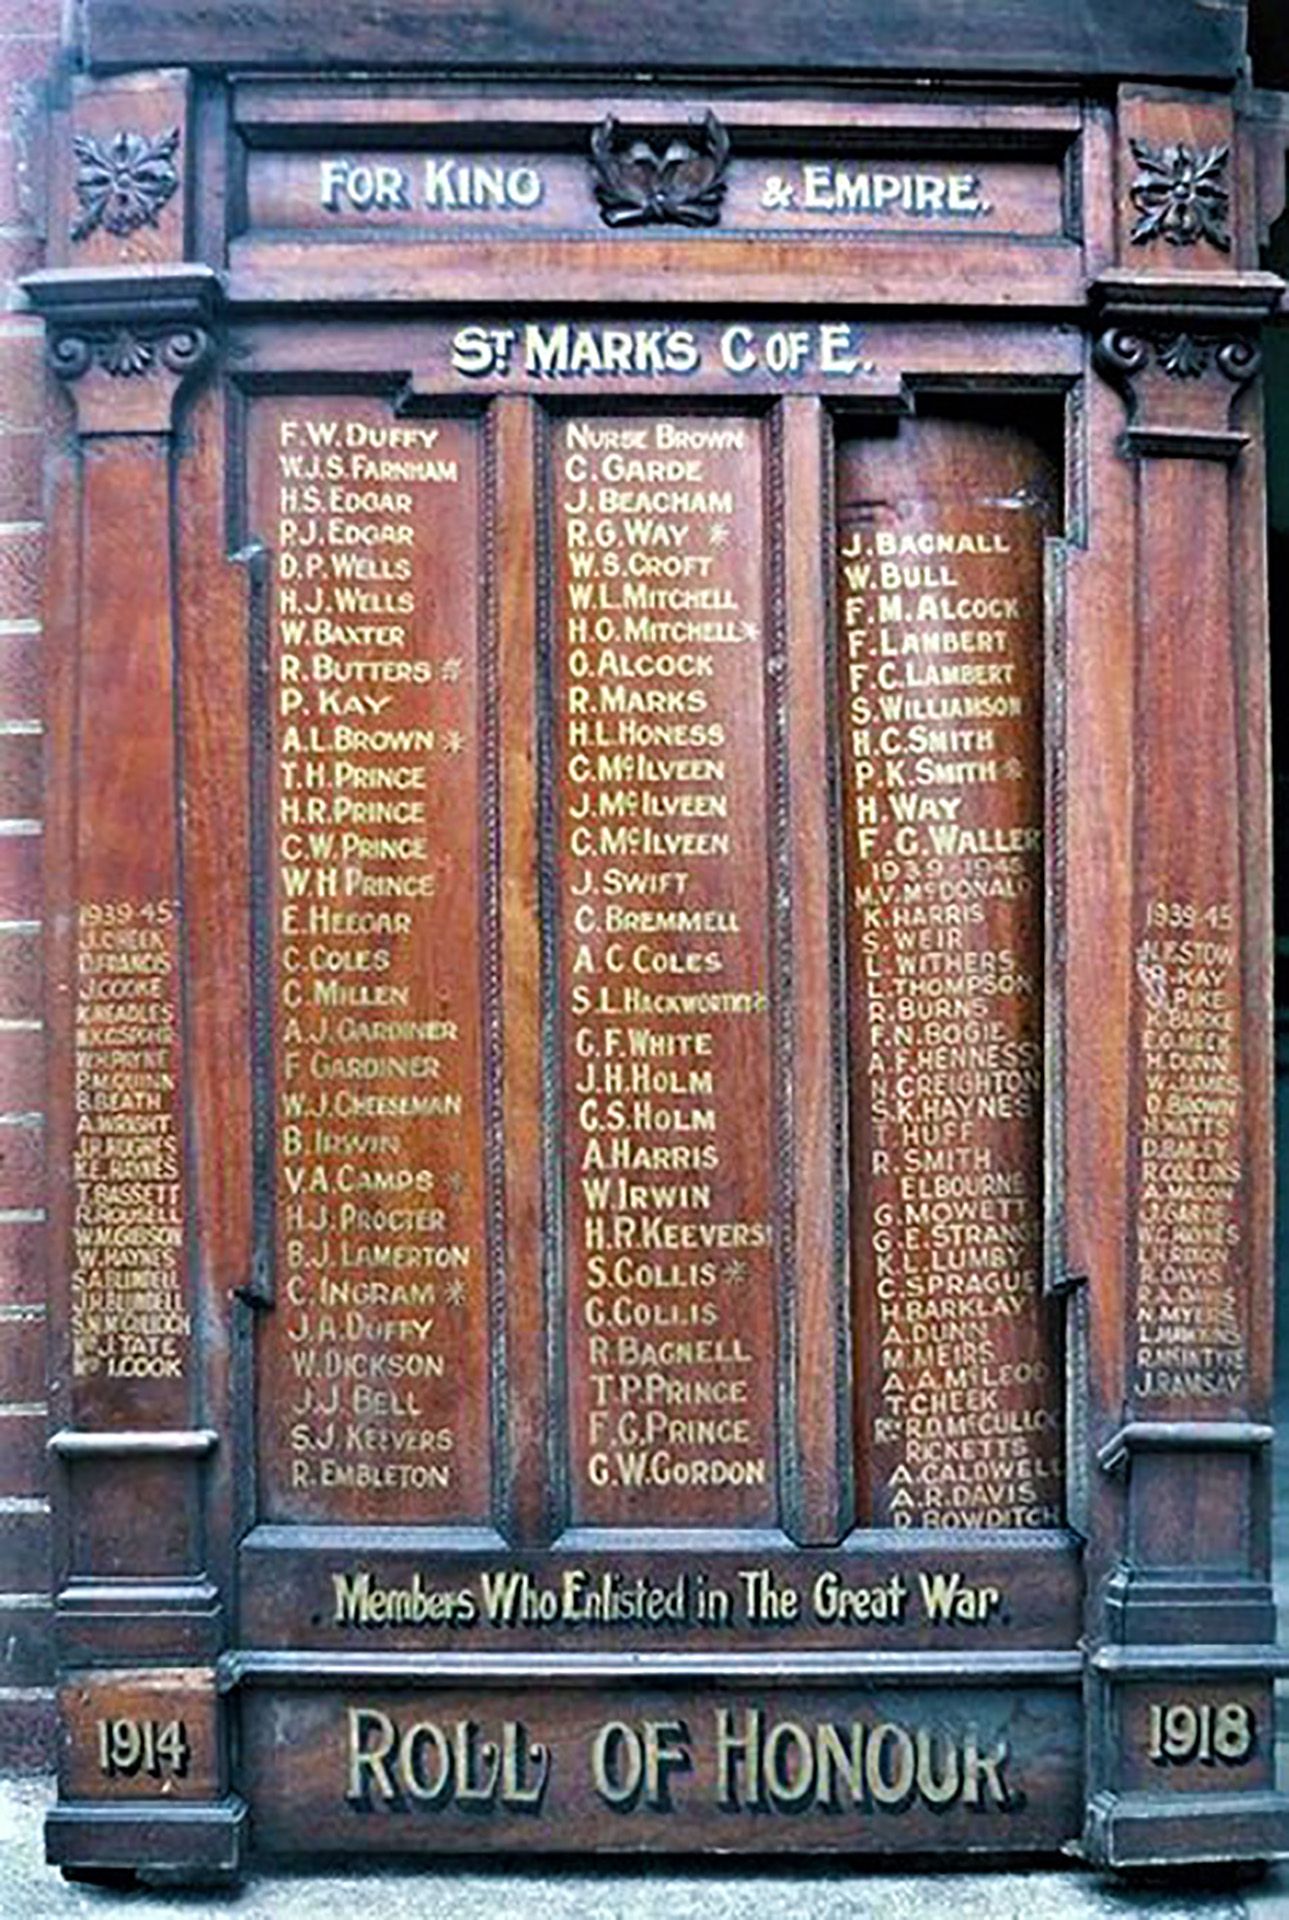 FOR KING & EMPIRE.
ST MARK'S C OF E.
F.W. DUFFY
W.J.S. FARNHAM
H.S. EDGAR
R.J. EDGAR
D.P. WELLS
H.J. WELLS
W. BAXTER
R. BUTTERS *
P. KAY
A.L. BROWN *
T.H. PRINCE
H.R. PRINCE
C.W. PRINCE
W.H PRINCE
E. HEEGAR
C. COLES
C. MILLEN
A.J. GARDINER
F GARDINER
W.J. CHEESEMAN
B. IRWIN
V.A. CAMPS *
H.J. PROCTER
B.J. LAMERTON
C. INGRAM *
J.A. DUFFY
W. DICKSON
J.J. BELL
S.J. KEEVERS
R. EMBLETON
NURSE BROWN
C. GARDE
J. BEACHAM
R.G. WAY *
W.S. CROFT
W.L. MITCHELL
H.O. MITCHELL *
O. ALCOCK
R. MARKS
H.L. HONESS
C. McILVEEN
J. McILVEEN
C. McILVEEN
J. SWIFT
C. BREMMELL
A.C. COLES
S.L. HACKWORTHY
G.F. WHITE
J.H. HOLM
G.S. HOLM
A. HARRIS
W. IRWIN
H.R. KEEVERS
S. COLLIS *
G. COLLIS
R. BAGNELL
T.P. PRINCE
F.G. PRINCE
G.W. GORDON
J. BAGNALL
W. BULL
F.M. ALCOCK
F. LAMBERT
F.C. LAMBERT
S. WILLIAMSON
H.C. SMITH
P.K. SMITH *
H. WAY
F.C. WALLER
1939-1945
M.V. McDONALD
K. HARRIS
S. WEIR
L. WITHERS
L. THOMPSON
R. BURNS
F.N. BOGIE
A.F. HENNESSY
N. CREIGHTON
S.K. HAYNES
T. HUFF
R. SMITH
ELBOURNE
G. MOWETT
G.E. STRANG
K.L. LUMBY
C. SPRAGUE
H. BARKLAY
A. DUNN
M. MEIRS
A.A. McLEOD
T. CHEEK
R.D. McCULLO
RICKETTS
A. CALDWELL
A.R. DAVIS
R. BOWDITCH
1939-45
J. CHEEK
D. FRANCIS
J. COOKE
K. READLES
W.H. PAYNE
P. McGUINN
B. BEATH
A. WRIGHT
J.R. HUGHES
K.E. HAYNES
T. BASSETT
R. ROUSELL
W.M. GIBSON
W. HAYNES
S.A. BLUNDELL
J.H. BLUNDELL
J. TATE
I. COOK
1939-45
STOW
KAY
PIKE
BURKE
E.G. MECK
H. DUNN
W. JAMES
D. BROWN
H. WATTS
D. BAILEY
R. COLLINS
A. MASON
J. GARDE
W.G. HAYNES
L.H. RIXON
R. DAVIS
R.A. DAVIS
N. MYERS
L. HAWKINS
R. McINTYRE
J. RAMSAY
MEMBERS WHO ENLISTED IN THE GREAT WAR.
1914
ROLL OF HONOUR.
1918